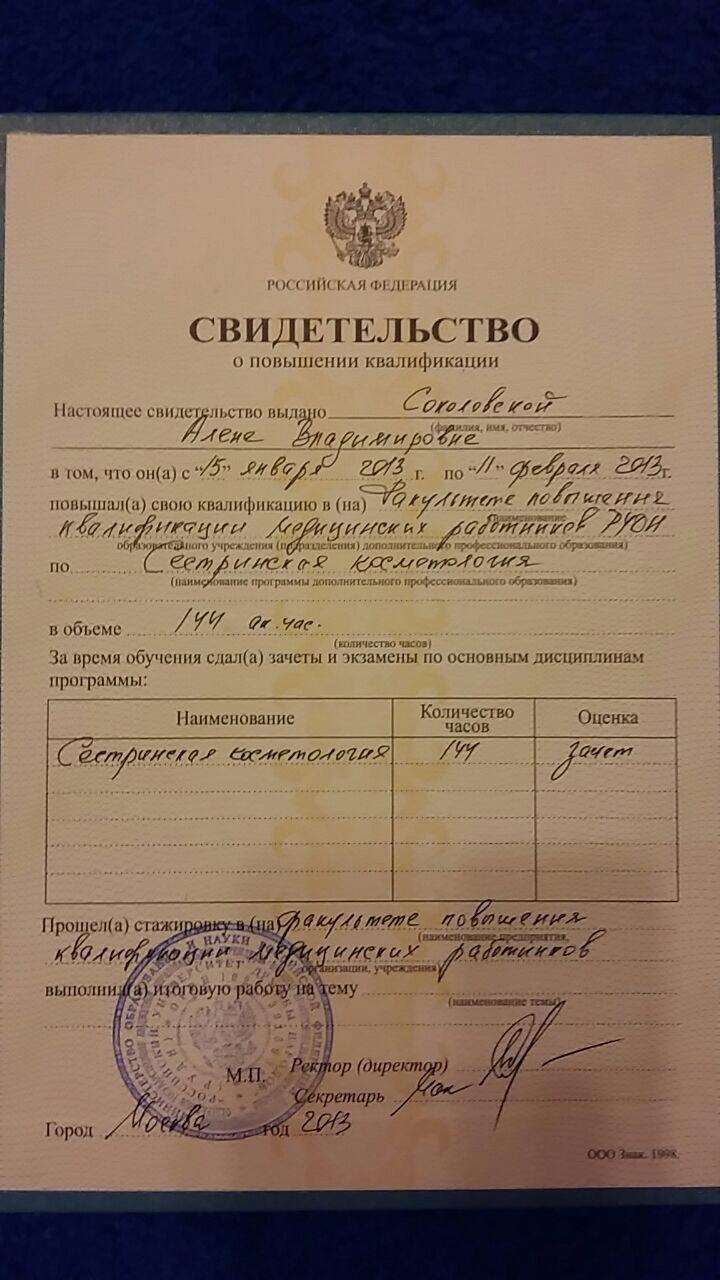 РОССИЙСКАЯ ФЕДЕРАЦИЯ
СВИДЕТЕЛЬСТВО
о повышении квалификации
Настоящее свидетельство выдано Соколовской
(фамилия, имя, отчество)
Алене Владимировне
в том, что он(а) с "15" января 2013 г. по "11" февраля 2013г.
повышал(а) свою квалификацию в (на) Факультете повышения
(наименование
квалификации медицинских работников РУДН
образовательного учреждения (подразделения) дополнительного профессионального образования)
по Сестринская косметология
(наименование программы дополнительного профессионального образования)
в объеме 144 ак.час.
(количество часов)
За время обучения сдал(а) зачеты и экзамены по основным дисциплинам
программы:
Наименование Количество часов Оценка
Сестринская косметология 144 зачет
Прошел(а) стажировку в (на) факультете повышения
(наименование предприятия,
квалификации медицинских работников
организации, учреждения)
выполнил(а) итоговую работу на тему
(наименование темы)
М.П. Ректор (директор)
Секретарь
Город Москва год 2013
ООО Знак. 1998.